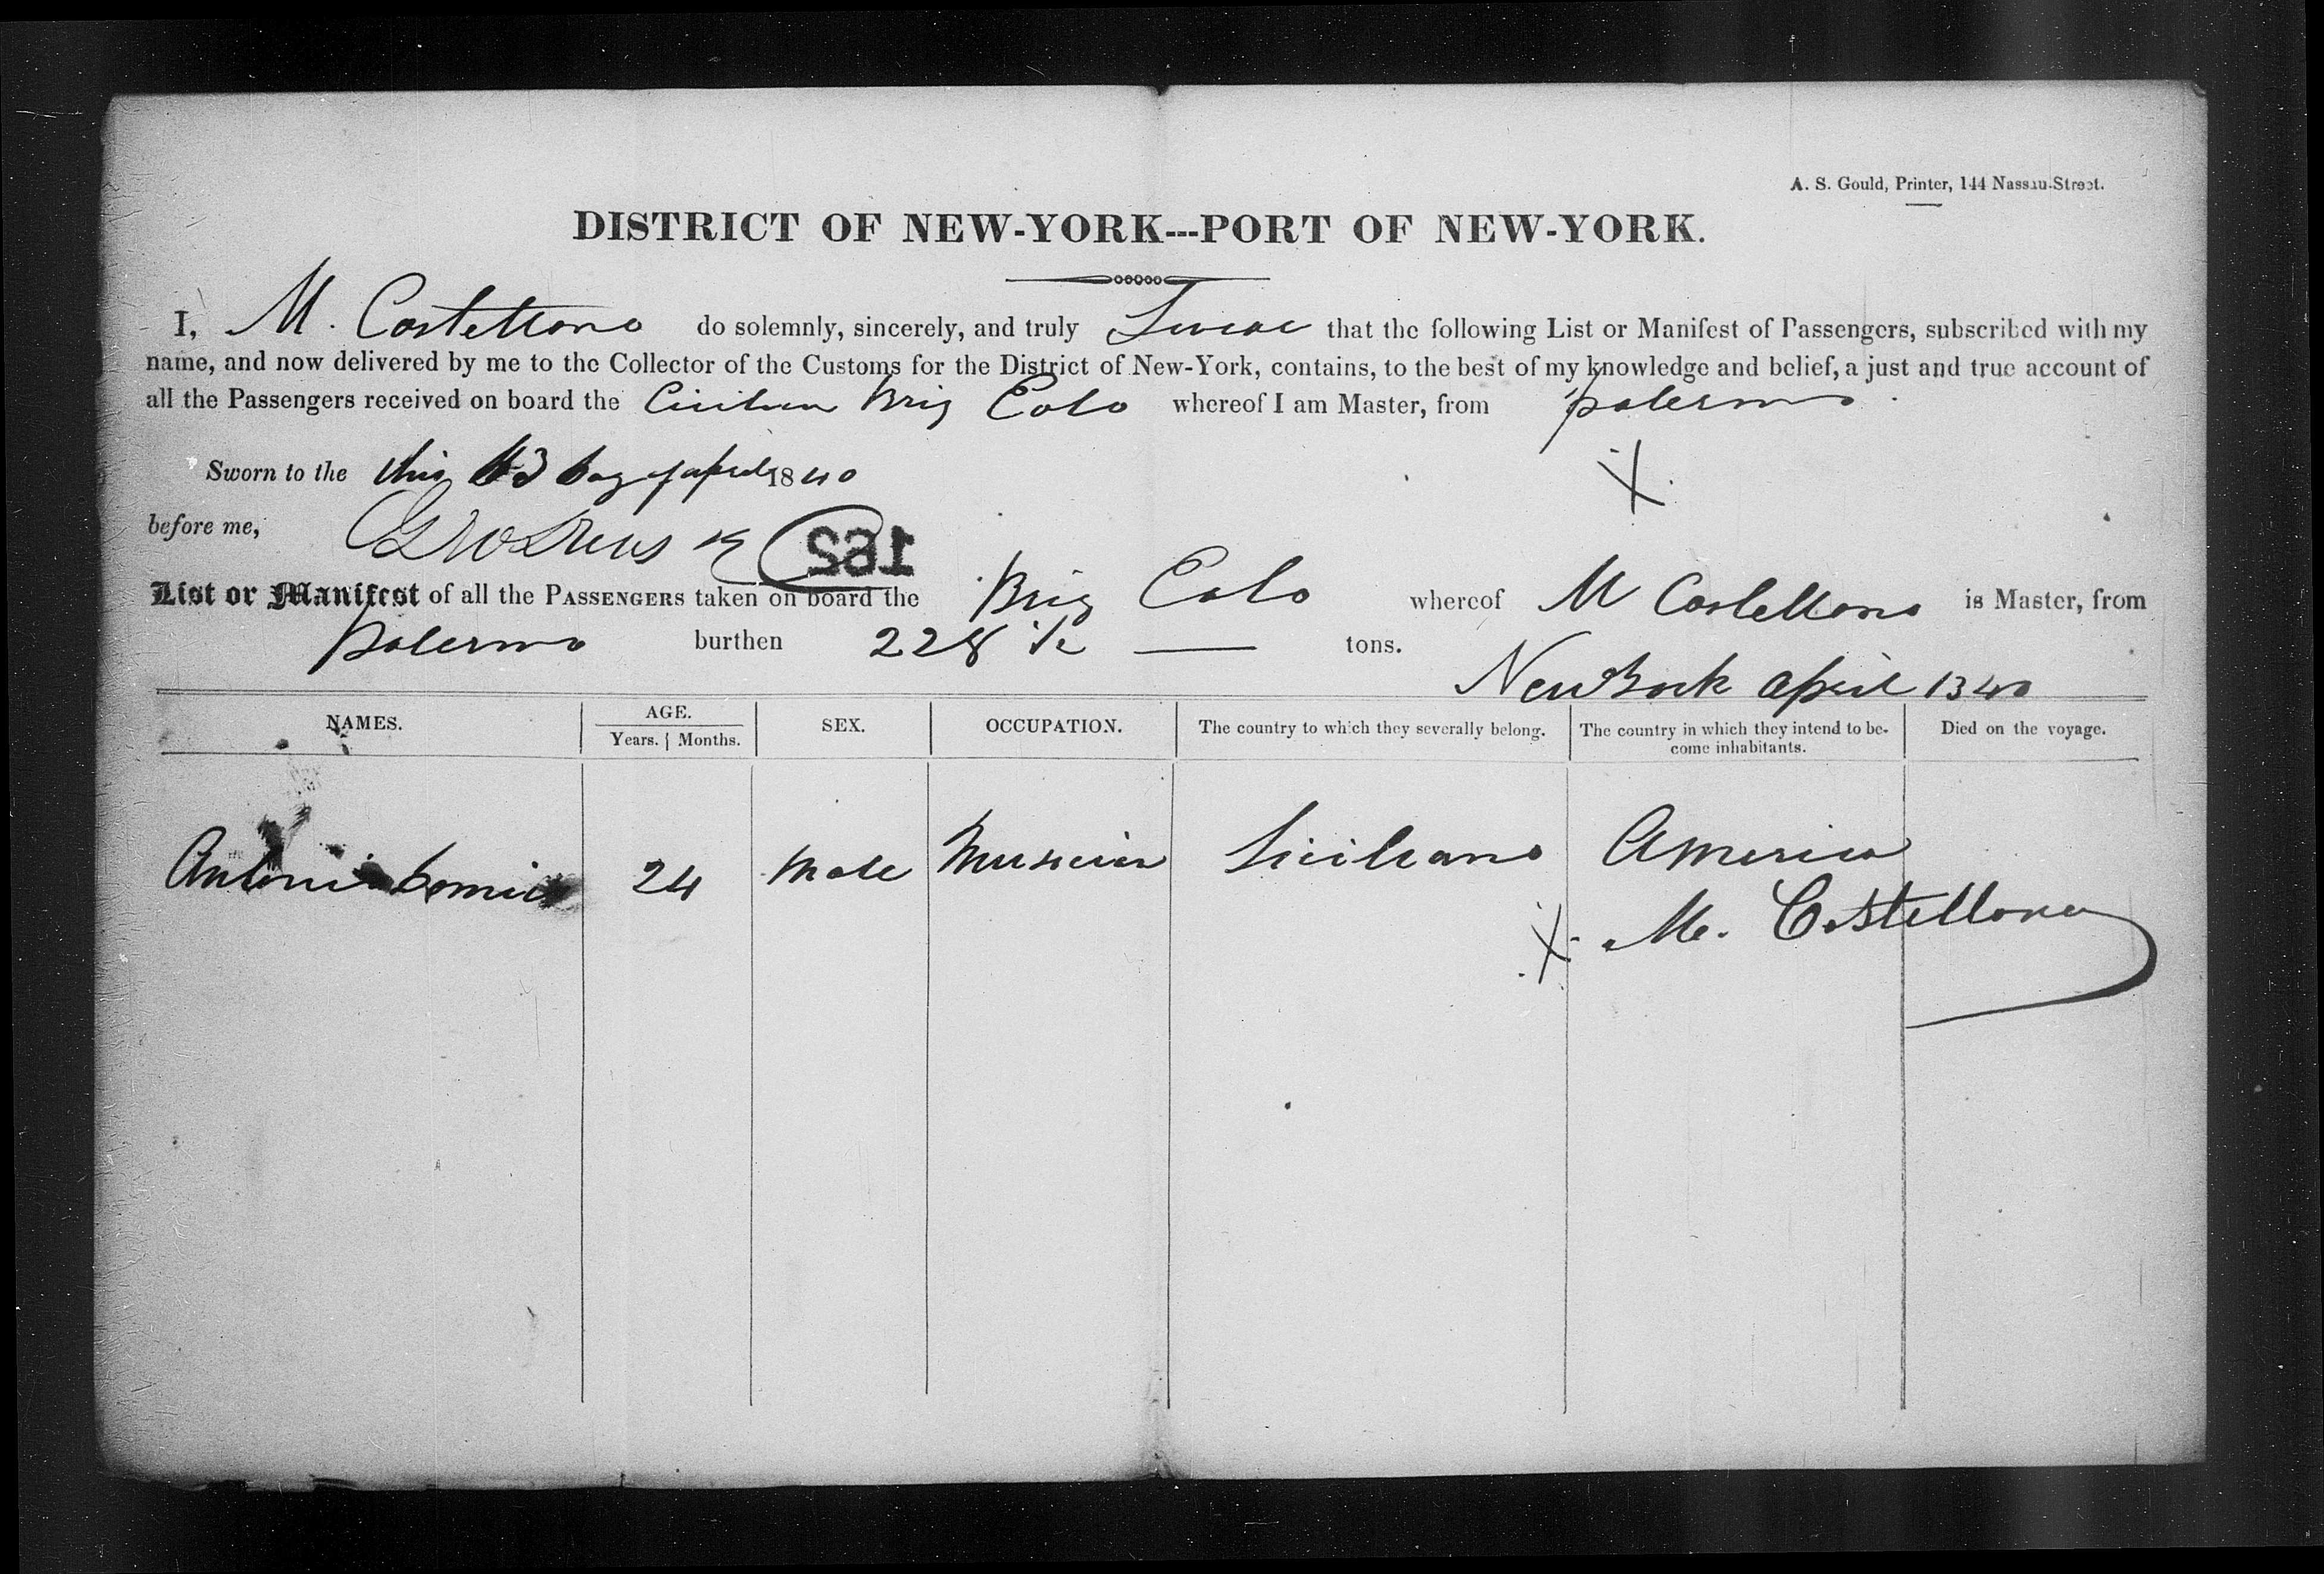 A. S. Gould, Printer, 144 Nassau-Street.
DISTRICT OF NEW-YORK---PORT OF NEW-YORK.
I, M. Castellano do solemnly, sincerely, and truly Swear that the following List or Manifest of Passengers, subscribed with my
name, and now delivered by me to the Collector of the Customs for the District of New-York, contains, to the best of my knowledge and belief, a just and true account of
all the Passengers received on board the Cicilian Brig Eolo whereof I am Master, from Palermo
X
Sworn to the this 13 day of april 1840
before me,
162
List or Manifest of all the PASSENGERS taken on board the Brig Eolo whereof M Castellano is Master, from
Palermo burthen 228 tons.
New York April 1840
NAMES. AGE. SEX. OCCUPATION. The country to which they severally belong. The country in which they intend to be- Died on the voyage.
Years. Months. come inhabitants.
Antonio 24 Male Musician Siciliano America
X M. Castellano